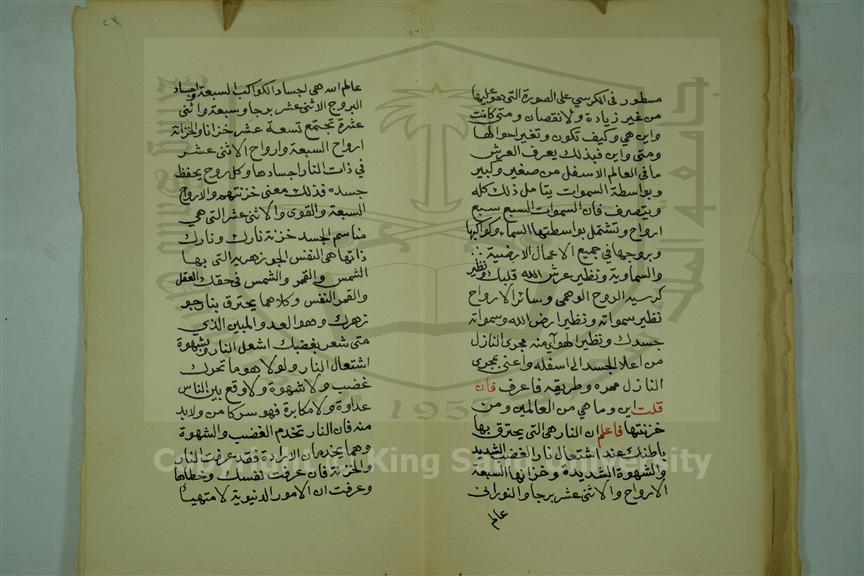 مسطور في الكرسي على الصورة التي هو عليها
من غير زيادة ولا نقصان ومتى كانت
واين هي وكيف تكون وتغير احوالها
ومتى واين فبذلك يعرف العرش
ما في العالم الاسفل من صغير وكبير
وبواسطة السموات يتامل ذلك كله
ويتصرف فان السموات السبع سبع
ارواح وتشتمل بواسطتها السماء وكواكبها
وبروجها في جميع الاعمال الارضية
والسماوية ونظير عرش الله قلبك ونظير
كرسيه الروح الوهمي وسائر الارواح
نظير سمواته ونظير ارض الله وسمواته
جسدك ونظير الهوآء منه مجرى النازل
من اعلا الجسد الى اسفله واعني بمجرى
النازل ممره وطريقه فاعرف فان
قلت اين وما هي من العالمين ومن
خزنتها فاعلم ان النار هي التي يحترق بها
باطنك عند اشتعال نار الغضب الشديد
والشهوة الشديدة وخزانها السبعة
الارواح والاثنى عشر برجا والنوراني
عالم
عالم الله هي اجساد الكواكب السبعة واجساد
البروج الاثنى عشر برجا وسبعة واثنى
عشرة تجتمع تسعة عشر خزانا والخزانة
ارواح السبعة وارواح الاثنى عشر
في ذات النار اجسادها وكل روح يحفظ
جسده فذلك معنى خزنتهم والارواح
السبعة والقوى والاثنى عشر التي هي
مناسم الجسد خزنة نارك ونارك
ذاتها هي النفس الجوزهرية التي بها
الشمس والقمر والشمس في حقك العقل
والقمر النفس وكلاهما يحترق بنار جو
زهرك وهو العدو المبين الذي
متى شعر بغضبك اشعل النار وبشهوة
اشتعال النار ولولا هو ما تحرك
غضب ولا شهوة ولا وقع بين الناس
عداوة ولا مكابرة فهو سركامن ولابد
منه فان النار تخدم الغضب والشهوة
وهما يخدمان الارادة فقد عرفت النار
والخزنة فان عرفت نفسك وخطاها
وعرفت ان الامور الدنيوية لا منتهى
Copyright © King Saud University
جامعة الملك سعود
1957